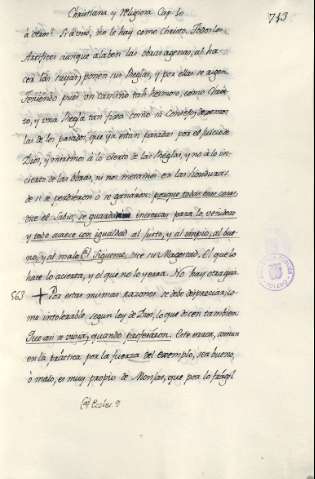 Christiana y Religiosa Cap. 10
743
à otro? Si à uno, no le hay como Christo. Todos los
Artifices aunque alaben las obras agenas, al ha-
cer las suyas, ponen sus Reglas, y por ellas se rigen.
Teniendo pues un camino tan hermoso, como Chris-
to, y una Regla tan fixa como su Consejo, dexemos
las de los pasados, que ya estan paradas por el juicio de
Dios, y miremos à lo cierto de las Reglas, y no à lo in-
cierto de las obras, ni nos metamos en las honduras
de si se perdieron ò se ganaron: porque todas estas cosas
dice el Sabio, se guardan inciertas para lo venidero
y todo acaece con igualdad al justo, y al impio, al bue-
no, y al malo @. Sigueme, dice su Magestad. El que lo
hace lo acierta, y el que no lo yerra. No hay otra guia.
563 + Por estas mismas razones se debe despreciar, co-
mo intolerable segun ley de Dios, lo que dicen tambien:
Juezan a vivir, quando profesaron. Este error, comun
en la práctica por la fuerza del exemplo, sea bueno,
ò malo, es muy propio de Monjas, que por lo fragil
@ Eccles. 9